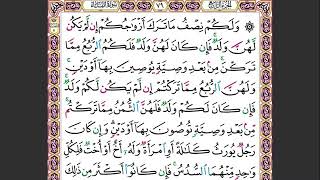 وَلَكُمْ نِصْفُ مَا تَرَكَ أَزْوَٰجُكُمْ إِن لَّمْ يَكُن
لَّهُنَّ وَلَدٌ فَإِن كَانَ لَهُنَّ وَلَدٌ فَلَكُمُ ٱلرُّبُعُ مِمَّا
تَرَكْنَ مِنۢ بَعْدِ وَصِيَّةٍ يُوصِينَ بِهَآ أَوْ دَيْنٍ
وَلَهُنَّ ٱلرُّبُعُ مِمَّا تَرَكْتُمْ إِن لَّمْ يَكُن لَّكُمْ وَلَدٌ
فَإِن كَانَ لَكُمْ وَلَدٌ فَلَهُنَّ ٱلثُّمُنُ مِمَّا تَرَكْتُم
مِّنۢ بَعْدِ وَصِيَّةٍ تُوصُونَ بِهَآ أَوْ دَيْنٍ وَإِن كَانَ
رَجُلٌ يُورَثُ كَلَٰلَةً أَوِ ٱمْرَأَةٌ وَلَهُۥٓ أَخٌ أَوْ أُخْتٌ فَلِكُلِّ
وَٰحِدٍ مِّنْهُمَا ٱلسُّدُسُ فَإِن كَانُوٓا۟ أَكْثَرَ مِن ذَٰلِكَ